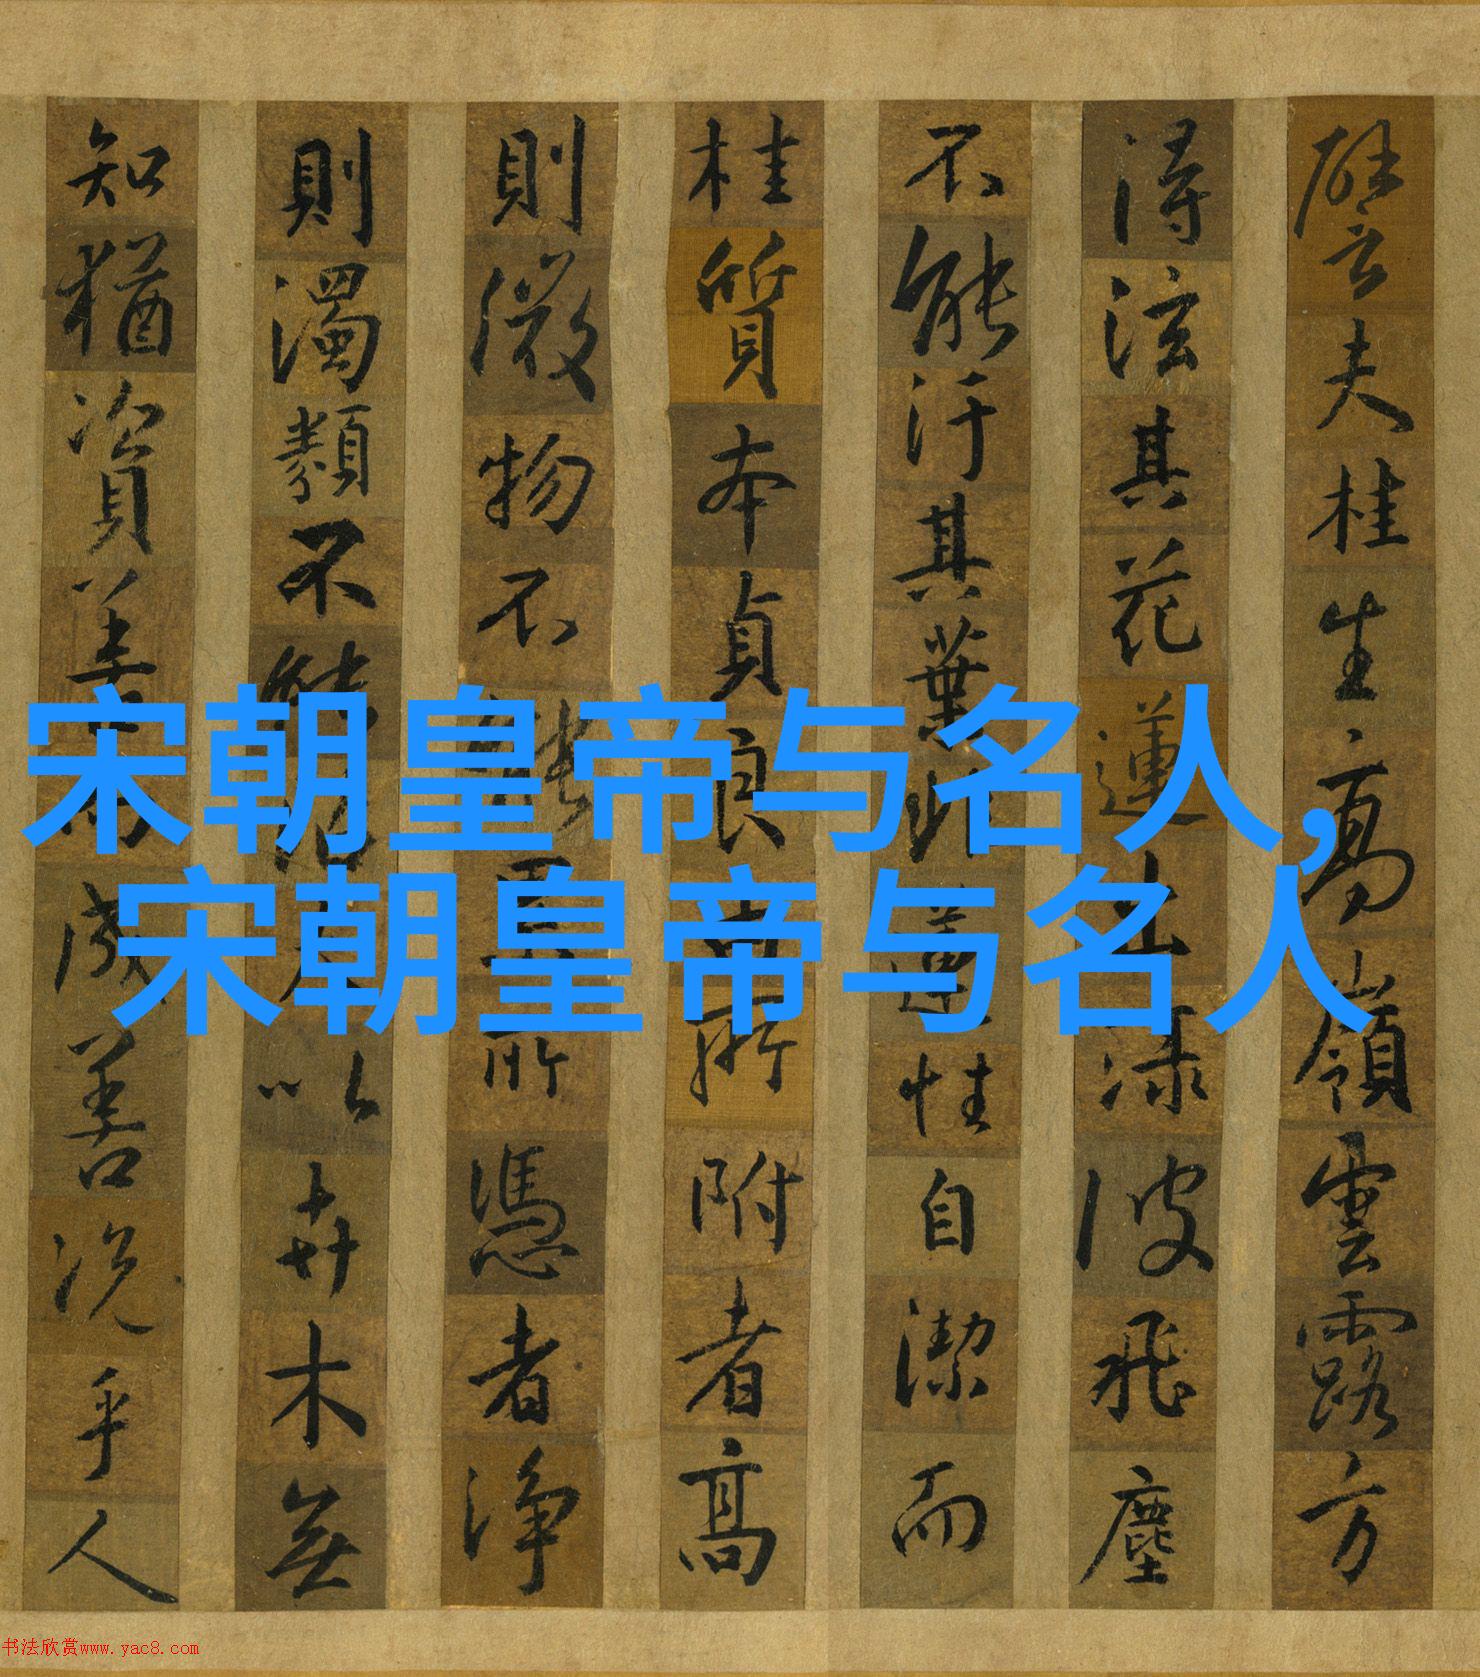 譬夫桂生高嶺雲露方
得泫其花蓮出淥波飛塵
不能汙其葉非蓮性自潔而
桂質本貞良由所附者高
則微物不能累所憑者淨
則濁類不能沾夫以卉木無
知猶資善而成善況乎人
宋朝皇帝与名人,
宋朝皇帝与名人
书法欣赏www.yac8.com